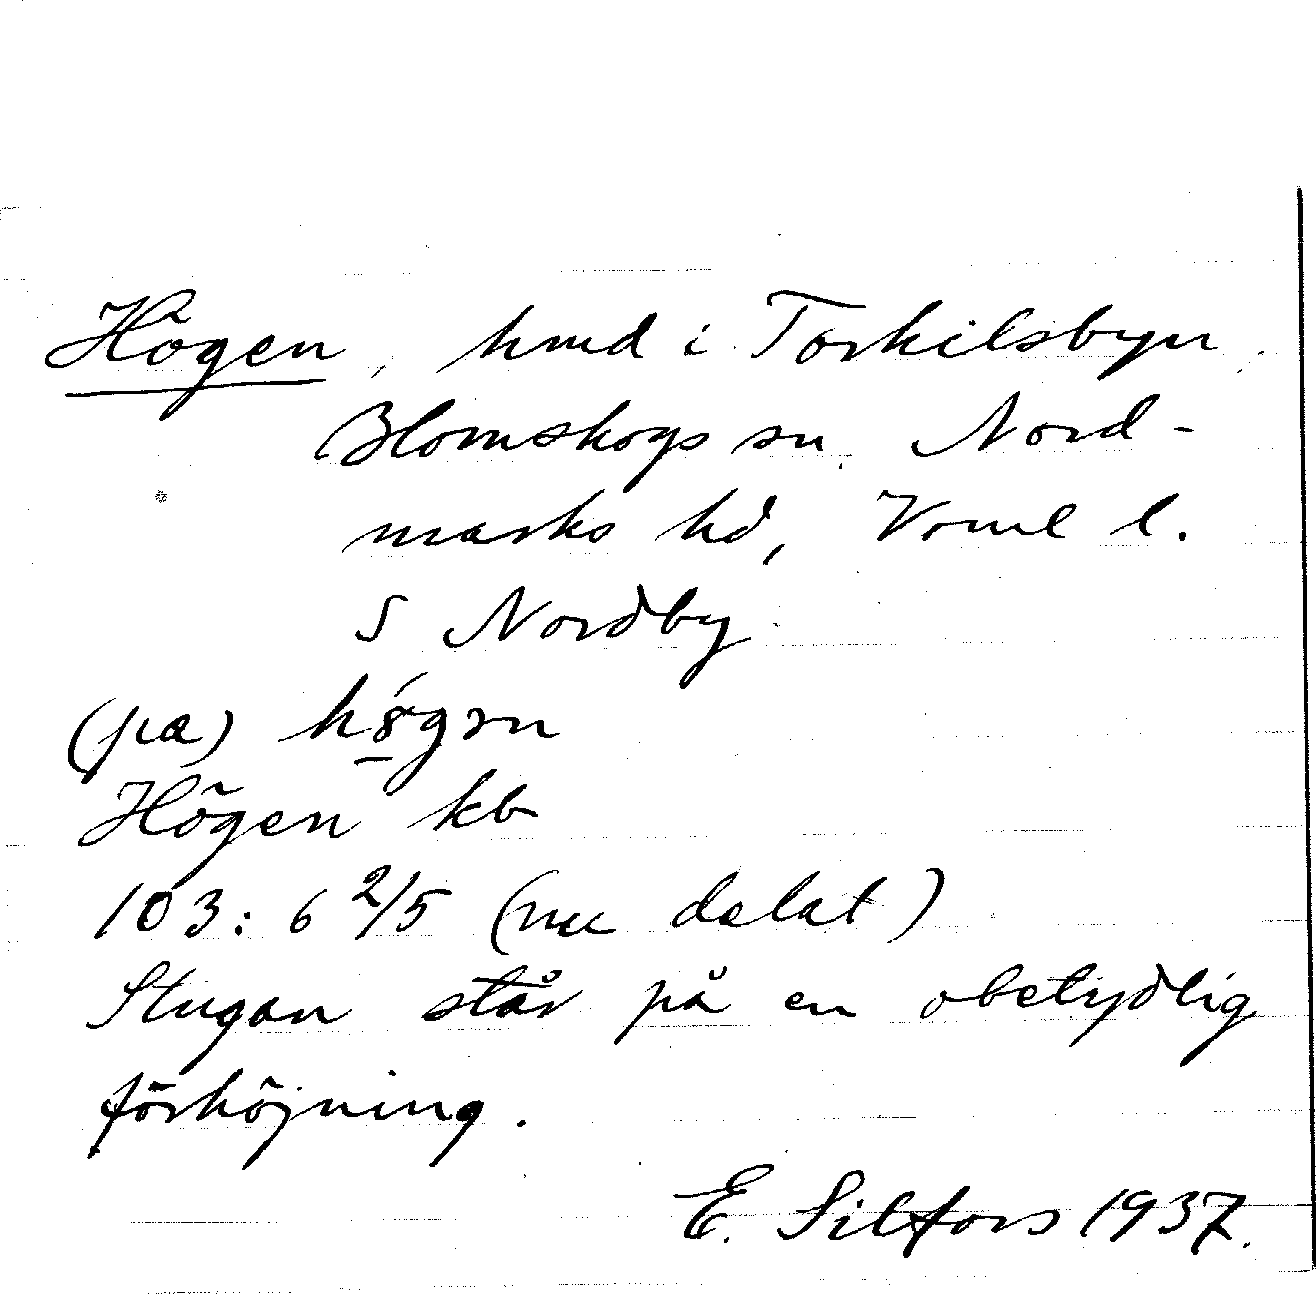 Högen, hmd i Torkilsbyn,
Blomskogs sn, Nord-
marks hd, Verml l.
S Nordby
(på)
Högen kb
103: 6 2/5 (nu delat)
Stugan står på en obetydlig
förhöjning.
E. Silfors 1937.